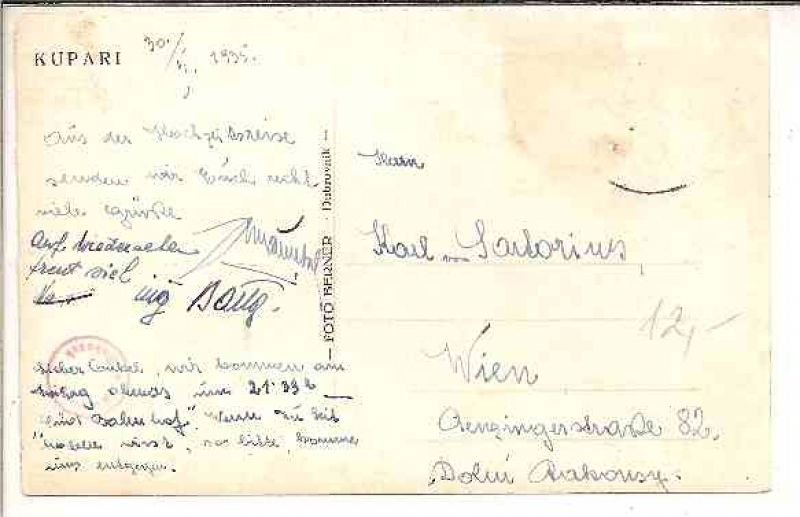 KUPARI 30./VI. 1935.
Aus der Hochzeitsreise
senden wir Euch recht
viele Grüsse
Auf Wiedersehen
freut viel
ing
FOTO BERNER - Dubrovnik
Herrn
Karl von Sartorius,
12,-
Wien
Penzingerstraße 82.
Dolní Rakousy.
Lieber Onkel, wir kommen am
abends um 21·33h
"Süd Bahnhof". Wenn Du Zeit
haben wirst, so bitte, komme
uns entgegen.